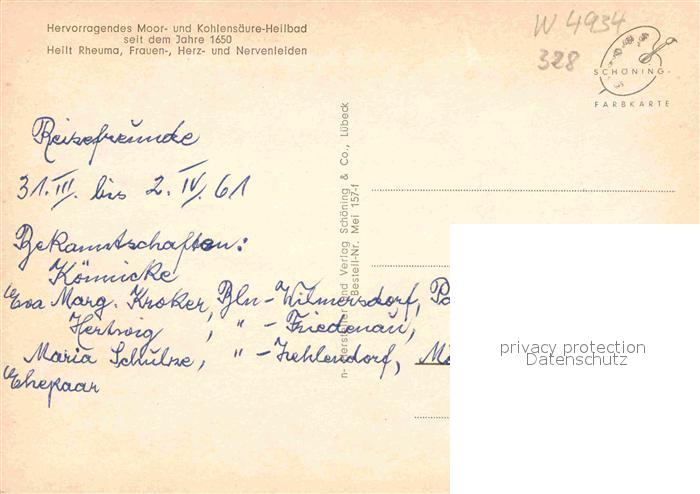 Hervorragendes Moor- und Kohlensäure-Heilbad
seit dem Jahre 1650
Heilt Rheuma, Frauen-, Herz- und Nervenleiden
W 4934
328
SCHÖNING-
FARBKARTE
Reisefreunde
31. III. bis 2. IV. 61
Bekanntschaften:
Könnicke
Eva Marg. Kroker, Bln-Wilmersdorf,
Hertwig, " - Friedenau,
Maria Schulze, " - Zehlendorf,
Ehepaar
Hersteller und Verlag Schöning & Co., Lübeck
Bestell-Nr. Mei 157-f
privacy protection
Datenschutz